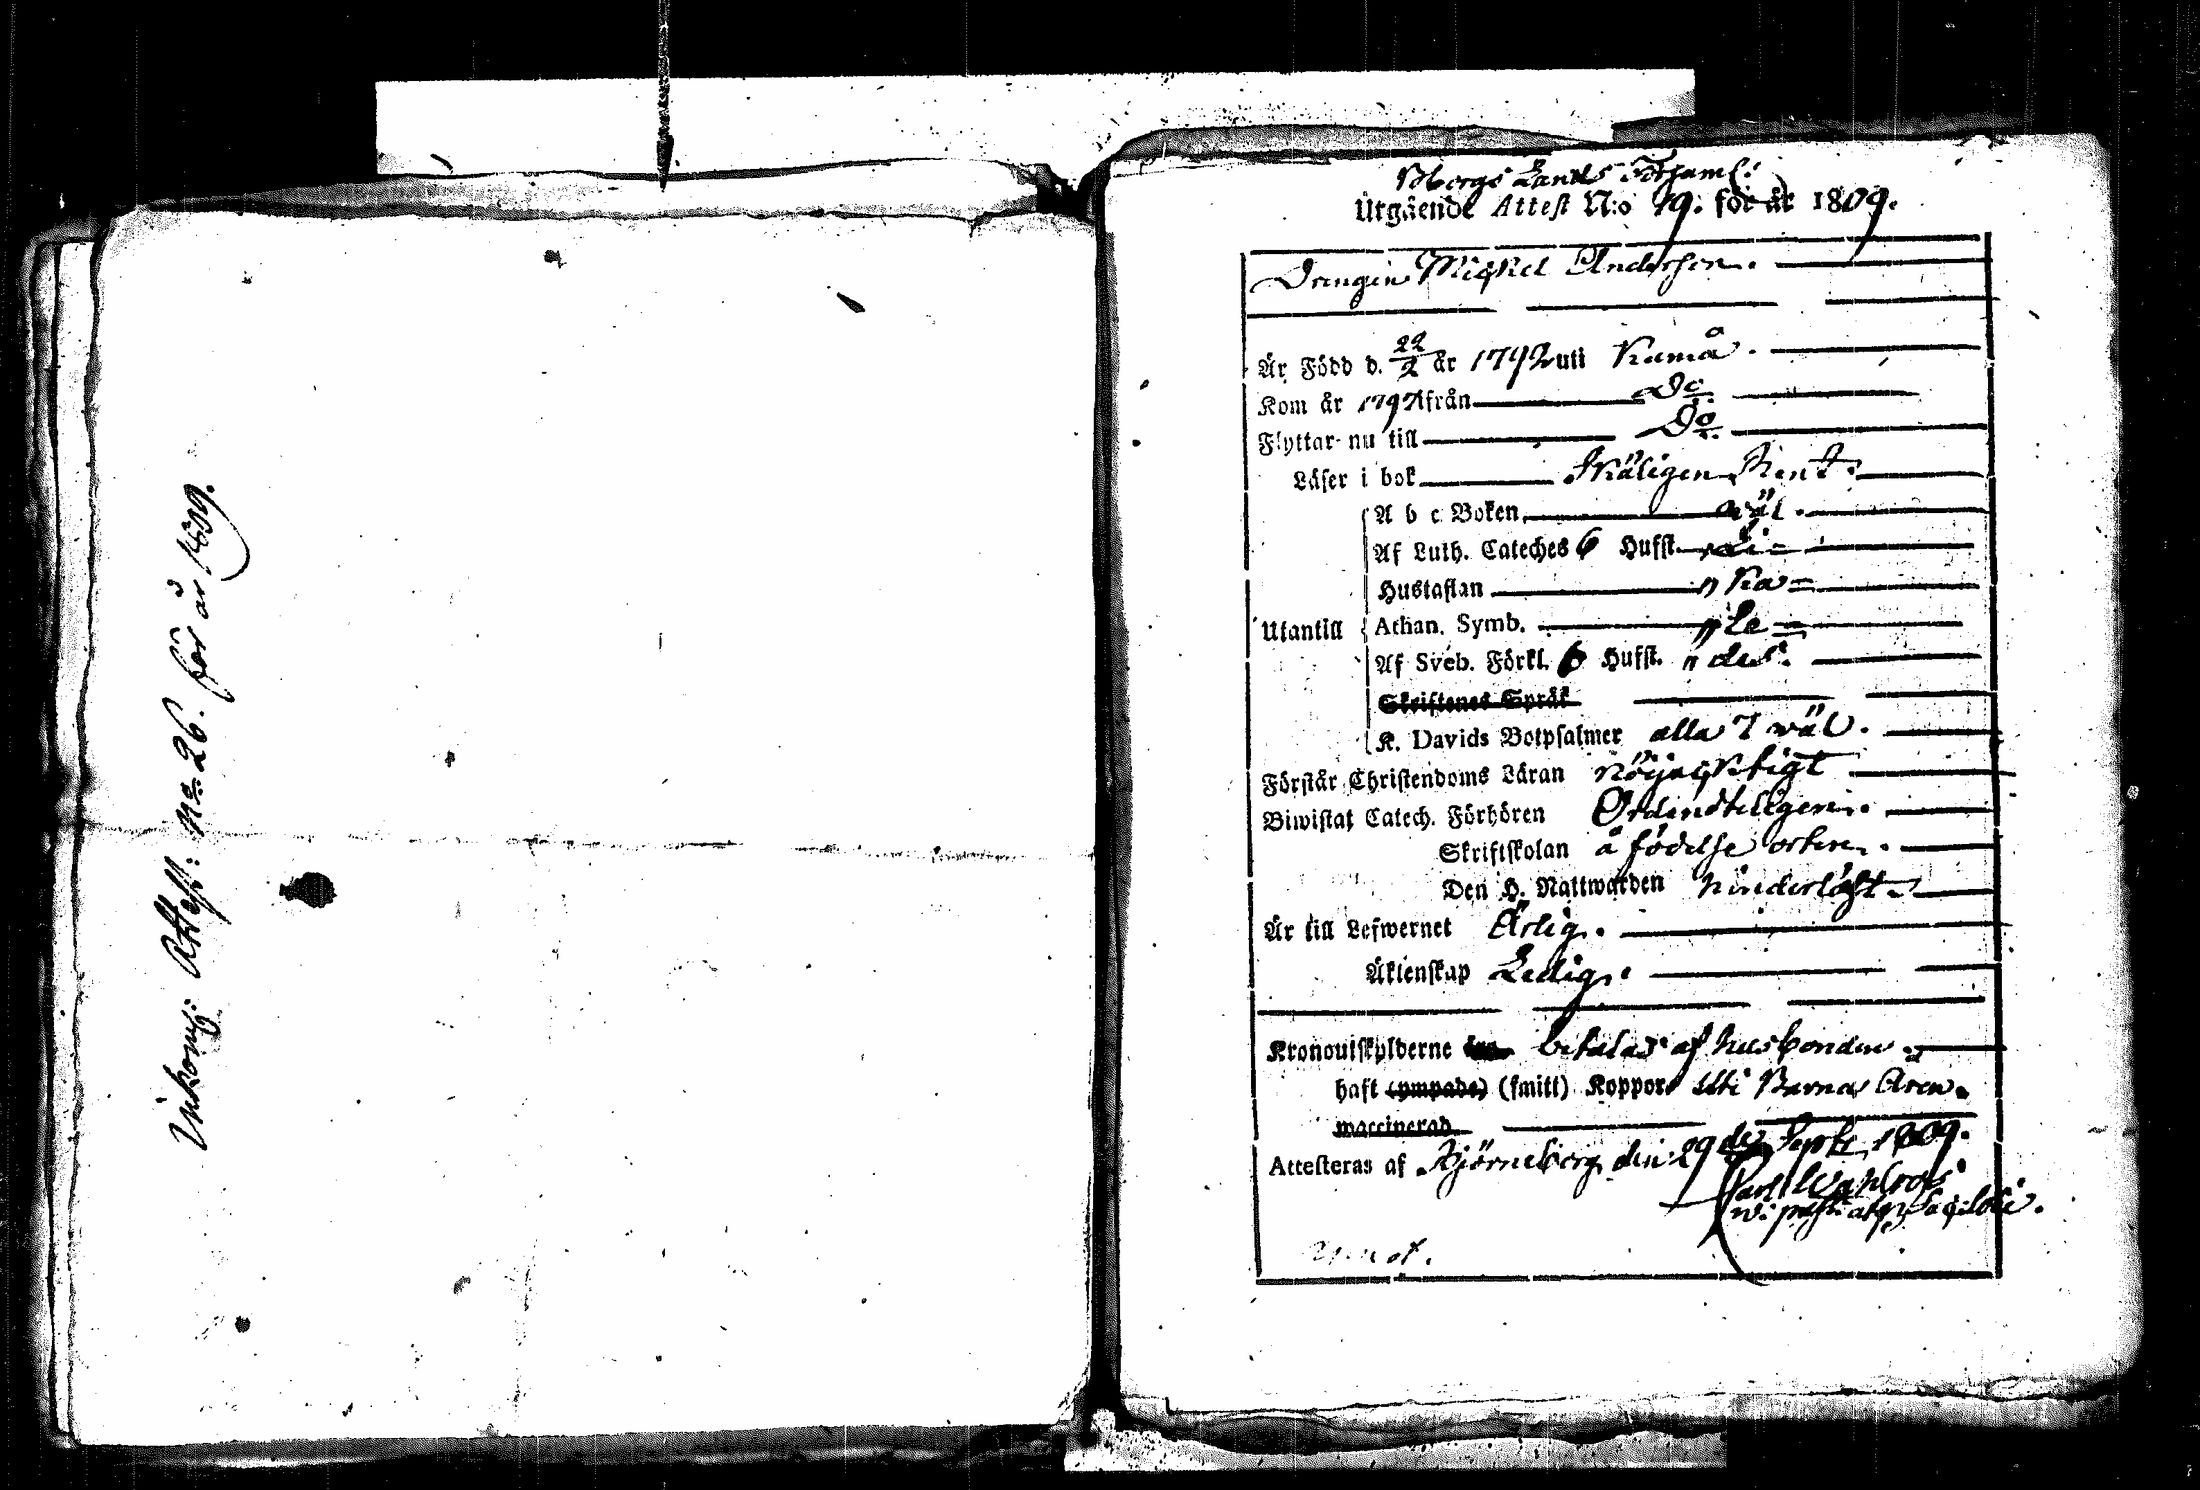 Inkom: Attest: No 26. för år 1809.
Bbergs Lands Församl:
Utgående Attest N:o 19. för år 1809.
Drengen Michel Andersson.
Är Född d. 22/2 år 1792 uti Kumå.
Kom år 1797 ifrån Do.
Flyttar nu till Do.
Läser i bok Skäligen Rent.
A b c Boken wäl.
Af Luth. Cateches 6 Hufst.
Hustaflan
Utantill Athan. Symb.
Af Sveb. Förkl. 6 Hufst.
Skriftenes Språk
K. Davids Botpsalmer alla 7 wäl.
Förstår Christendoms Läran nöjacktigt
Biwistat Catech. Förhören Ordenteligen.
Skriftskolan å födelse orten.
Den H. Nattwarden hinderlöst.
Är till Lefwernet Ärlig.
Äktenskap Ledig.
Kronoutskylderne betalas af husbonden.
haft (ympade) (smitt) Koppor uti Barna Åren.
waccinerad
Attesteras af Björneborg den 29de Septr 1809.
Carl Wahlroos